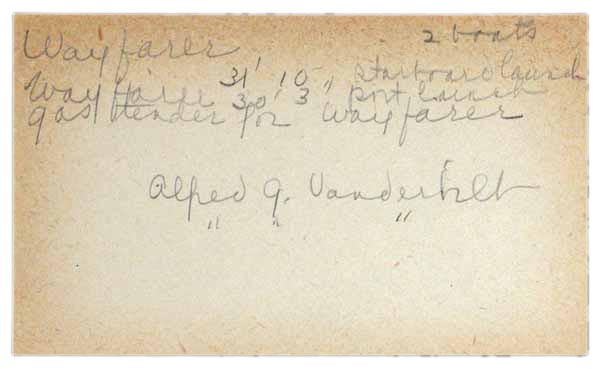 Wayfarer 2 boats
Wayfarer 31' 10" starboard launch
Wayfarer 30' 3" port launch
gas tender for Wayfarer
Alfred G. Vanderbilt
" " "